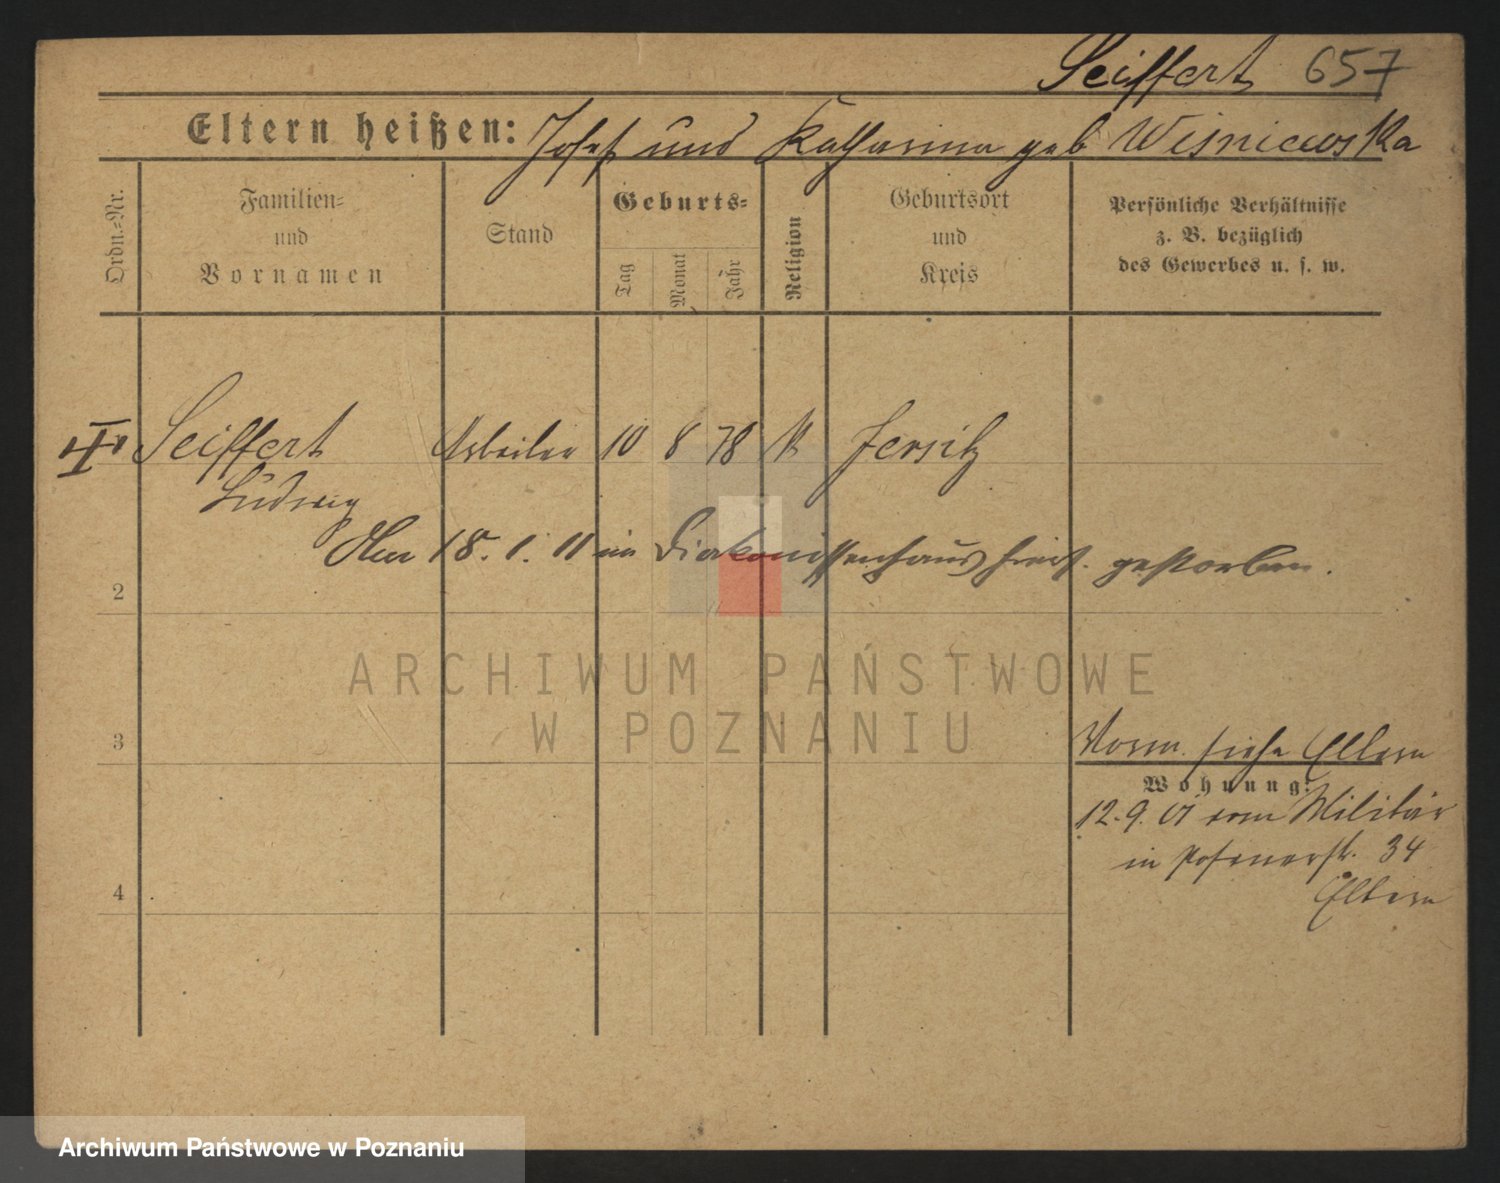 Seiffert 657
Eltern heißen: Josef und Katharina geb Wisniewska
Ordn.-Nr.
Familien-
und
Vornamen
Stand
Geburts-
Tag
Monat
Jahr
Religion
Geburtsort
und
Kreis
Persönliche Verhältnisse
z. B. bezüglich
des Gewerbes u. s. w.
Seiffert Arbeiter 10 8 78 K Jersitz
Ludwig
18. 1. 11 im Diakonissenhaus hiers. gestorben.
2
ARCHIWUM PAŃSTWOWE
W POZNANIU
3
Norm. siehe Eltern
Wohnung:
12.9.01 vom Militär
in Posenerstr. 34
Eltern
4
Archiwum Państwowe w Poznaniu